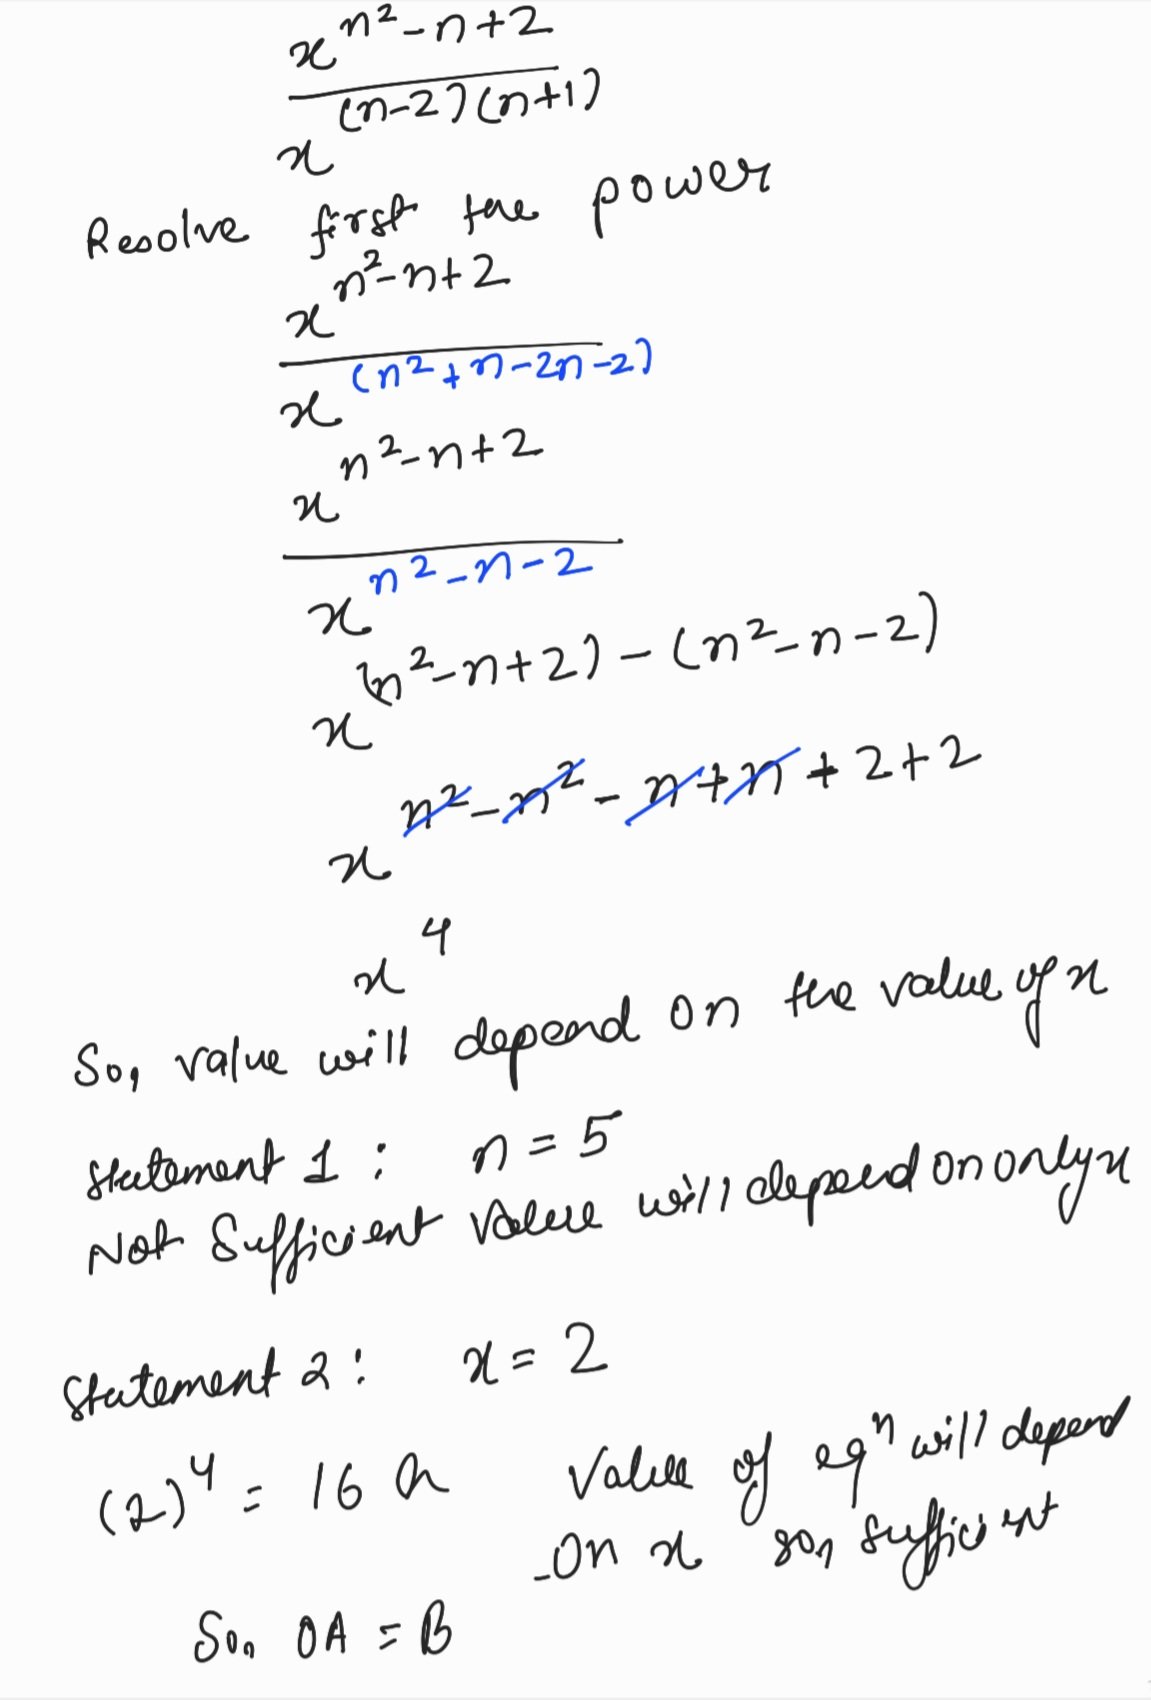 x^(n²-n+2)
x^((n-2)(n+1))
Resolve first the power
x^(n²-n+2)
x^((n²+n-2n-2))
x^(n²-n+2)
x^(n²-n-2)
x^((n²-n+2)-(n²-n-2))
x^(n²-n²-n+n+2+2)
x^4
So, value will depend on the value of x
Statement 1 : n = 5
Not Sufficient Value will depend on only x
Statement 2 : x = 2
(2)^4 = 16 Value of eqⁿ will depend
on x so, sufficient
So, OA = B